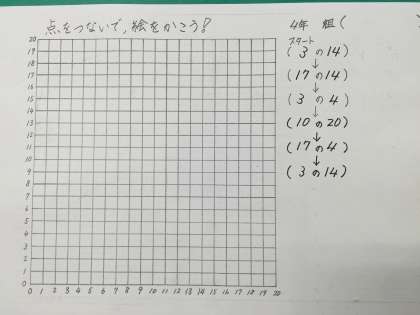 点をつないで,絵をかこう!
4年 組(
スタート
(3の14)
↓
(17の14)
↓
(3の4)
↓
(10の20)
↓
(17の4)
↓
(3の14)
20
19
18
17
16
15
14
13
12
11
10
9
8
7
6
5
4
3
2
1
0
0 1 2 3 4 5 6 7 8 9 10 11 12 13 14 15 16 17 18 19 20